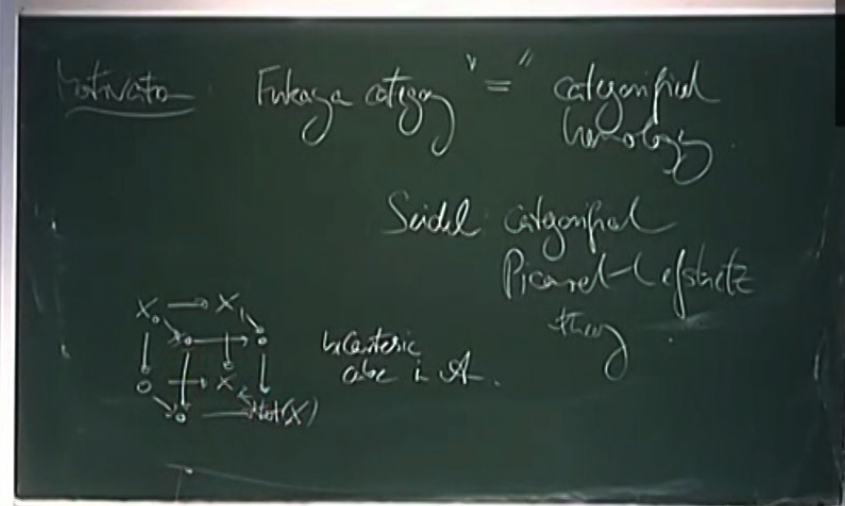 Motivation Fukaya category "=" categorified
homology.
Seidel categorified
Picard-Lefschetz
theory.
X₀ → X₁
0 → 0
0 → X
0 → Tot(X)
bicartesic
cube in A.